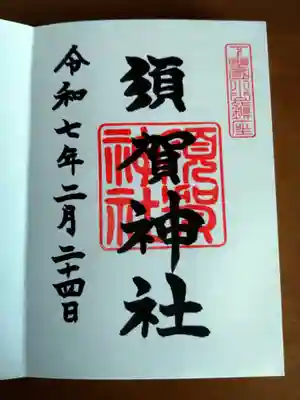 須賀神社
須賀
神社
令和七年二月二十四日